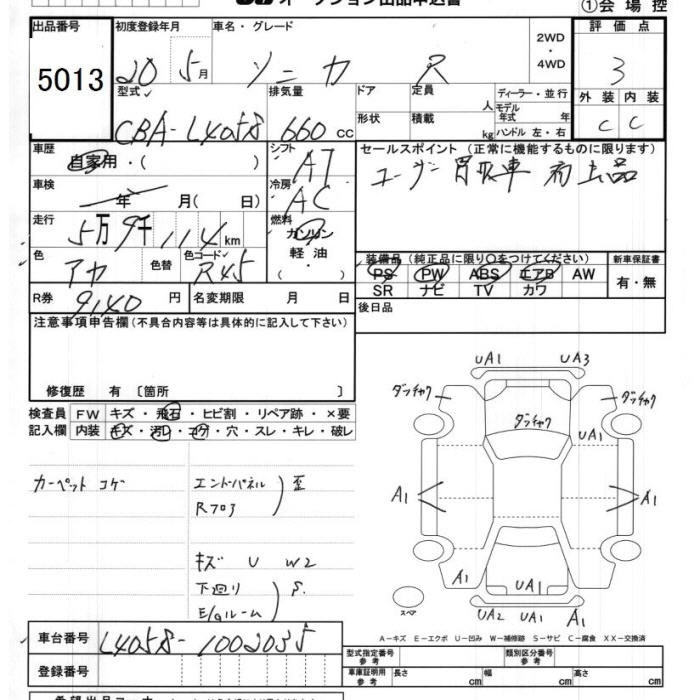 オークション出品申込書
①会場控
出品番号 初度登録年月 車名・グレード 2WD・4WD 評価点
5013 20 5月 ソニカ R 3
型式 排気量 ドア 定員 人 ディーラー・並行 外装 内装
モデル年式 年
CBA-L405S 660 cc 形状 積載 kg ハンドル 左・右 C C
車歴 シフト セールスポイント (正常に機能するものに限ります)
自家用・( ) AT ユーザー買取車 初出品
車検 冷房
年 月( 日) AC
走行 燃料
5万9千114km ガソリン
色 色替 色コード 軽油
アカ R45 ・( )
装備品 (純正品に限り○をつけてください) 新車保証書
PS PW ABS エアB AW 有・無
SR ナビ TV カワ
R券 9140円 名変期限 月 日 後日品
注意事項申告欄(不具合内容等は具体的に記入して下さい)
修復歴 有 〔箇所 〕
検査員 FW キズ・飛石・ヒビ割・リペア跡・×要
記入欄 内装 キズ・汚レ・コゲ・穴・スレ・キレ・破レ
カーペット コゲ エンドパネル 歪
Rフロア
キズ U W2
下廻り S.
E/gルーム
UA1 UA3
ダッチャク ダッチャク
ダッチャク
UA1
A1 A1
A1 UA1
スペア UA2 UA1 A1
A-キズ E-エクボ U-凹み W-補修跡 S-サビ C-腐食 XX-交換済
車台番号 L405S-1002035
登録番号
型式指定番号 参考 類別区分番号 参考
車庫証明用 参考 長さ cm 幅 cm 高さ cm